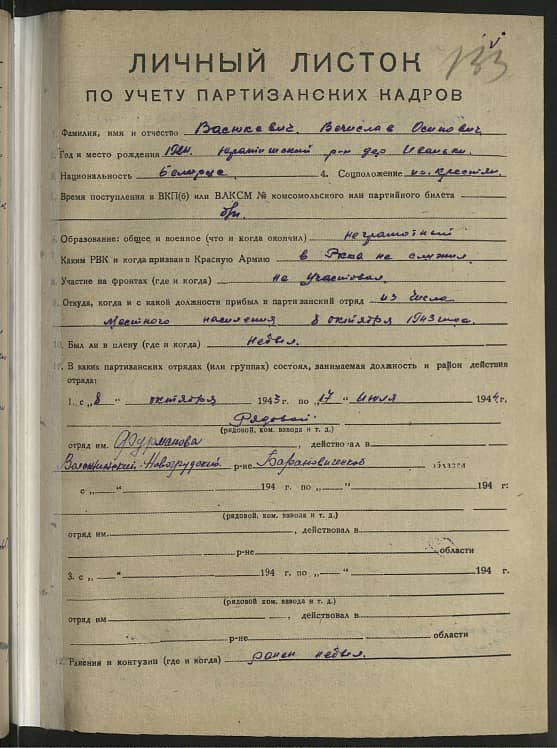 133
ЛИЧНЫЙ ЛИСТОК
ПО УЧЕТУ ПАРТИЗАНСКИХ КАДРОВ
Фамилия, имя и отчество Васюкевич Вечислав Осипович
Год и место рождения 1924. Юратишский р-н дер Иваньки
Национальность Беларус 4. Соцположение из крестьян
Время поступления в ВКП(б) или ВЛКСМ № комсомольского или партийного билета
б/п.
Образование: общее и военное (что и когда окончил) неграмотный
Каким РВК и когда призван в Красную Армию в Ркка не служил.
Участие на фронтах (где и когда) не участовал.
Откуда, когда и с какой должности прибыл в партизанский отряд из числа
местного населения 8 октября 1943 года.
10. Был ли в плену (где и когда) небыл.
11. В каких партизанских отрядах (или группах) состоял, занимаемая должность и район действия
отряда:
1. с „8“ октября 1943 г. по „17“ июля 1944 г.
Рядовой.
(рядовой, ком. взвода и т. д.)
отряд им. Фурманова, действовал в
Воложинский-Новогрудский р-не Барановичской области
с „ “ 194 г. по „ “ 194 г:
(рядовой, ком. взвода и т. д.)
отряд им. , действовал в
р-не области
3. с „ “ 194 г. по „ “ 194 г.
(рядовой, ком. взвода и т. д.)
отряд им , действовал в
р-не области
12. Ранения и контузии (где и когда) ранен небыл.